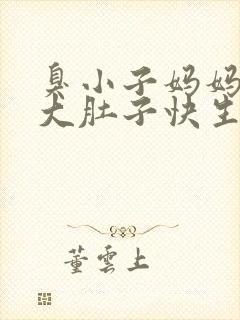 臭小子妈妈
大肚子快生
董雲上